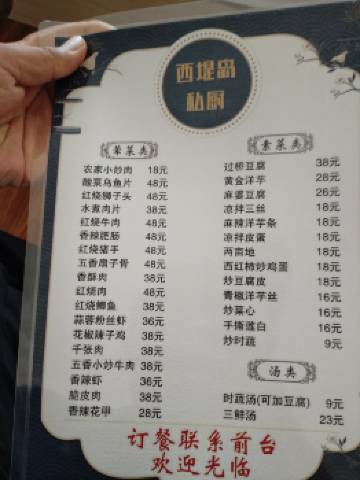 西堤岛
私厨
荤菜类
农家小炒肉 18元
酸菜乌鱼片 48元
红烧狮子头 48元
水煮肉片 38元
红烧牛肉 48元
香辣肥肠 48元
红烧猪手 48元
五香扇子骨 48元
香酥肉 38元
红烧肉 48元
红烧鲫鱼 38元
蒜蓉粉丝虾 36元
花椒辣子鸡 38元
千张肉 38元
五香小炒牛肉 38元
香辣虾 36元
脆皮肉 38元
香辣花甲 28元
素菜类
过桥豆腐 38元
黄金洋芋 28元
麻婆豆腐 26元
凉拌三丝 18元
麻辣洋芋条 18元
凉拌皮蛋 18元
两亩地 18元
西红柿炒鸡蛋 18元
炒豆腐皮 16元
青椒洋芋丝 16元
炒菜心 16元
手撕莲白 16元
炒时蔬 9元
汤类
时蔬汤(可加豆腐) 9元
三鲜汤 23元
订餐联系前台
欢迎光临